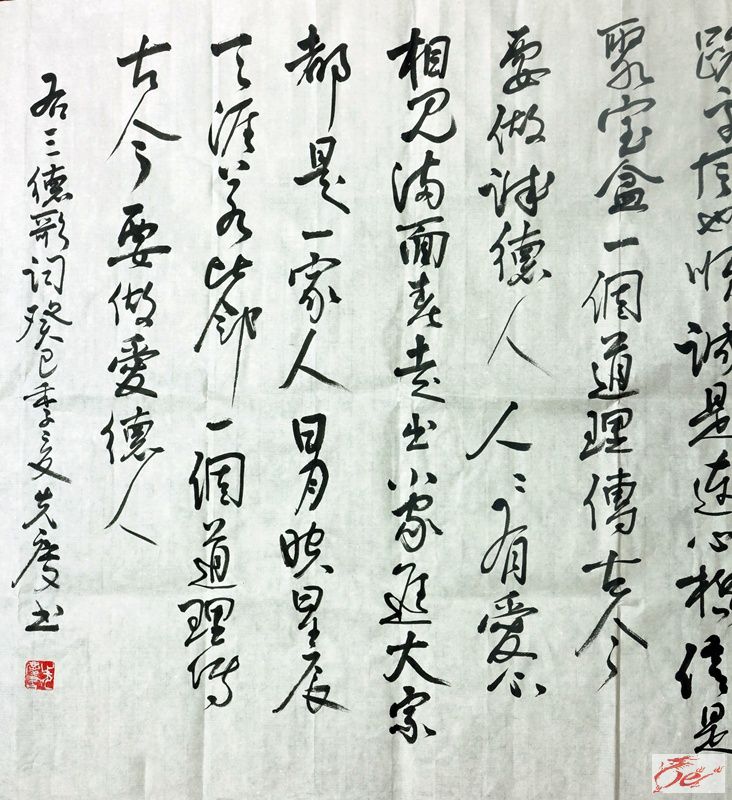 誠是連心橋信是
聚宝盆一個道理傳古今
要做誠德人 人々有愛心
相見满面春走出小家進大家
都是一家人 日月映星辰
天涯若比鄰一個道理傳
古今要做愛德人
右三德歌词癸巳季夏慶书